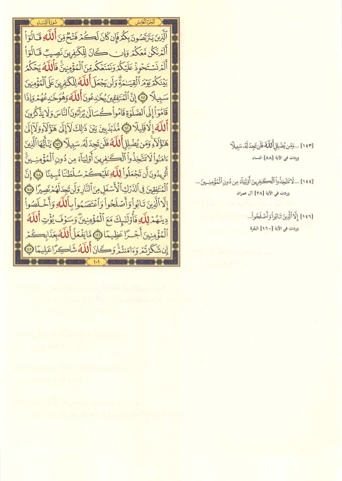 الجزء الخامس
سورة النساء
ٱلَّذِينَ يَتَرَبَّصُونَ بِكُمْ فَإِن كَانَ لَكُمْ فَتْحٌ مِّنَ ٱللَّهِ قَالُوٓا۟
أَلَمْ نَكُن مَّعَكُمْ وَإِن كَانَ لِلْكَٰفِرِينَ نَصِيبٌ قَالُوٓا۟
أَلَمْ نَسْتَحْوِذْ عَلَيْكُمْ وَنَمْنَعْكُم مِّنَ ٱلْمُؤْمِنِينَ فَٱللَّهُ يَحْكُمُ
بَيْنَكُمْ يَوْمَ ٱلْقِيَٰمَةِ وَلَن يَجْعَلَ ٱللَّهُ لِلْكَٰفِرِينَ عَلَى ٱلْمُؤْمِنِينَ
سَبِيلًا ١٤١ إِنَّ ٱلْمُنَٰفِقِينَ يُخَٰدِعُونَ ٱللَّهَ وَهُوَ خَٰدِعُهُمْ وَإِذَا
قَامُوٓا۟ إِلَى ٱلصَّلَوٰةِ قَامُوا۟ كُسَالَىٰ يُرَآءُونَ ٱلنَّاسَ وَلَا يَذْكُرُونَ
ٱللَّهَ إِلَّا قَلِيلًا ١٤٢ مُّذَبْذَبِينَ بَيْنَ ذَٰلِكَ لَآ إِلَىٰ هَٰٓؤُلَآءِ وَلَآ إِلَىٰ
هَٰٓؤُلَآءِ وَمَن يُضْلِلِ ٱللَّهُ فَلَن تَجِدَ لَهُۥ سَبِيلًا ١٤٣ يَٰٓأَيُّهَا ٱلَّذِينَ
ءَامَنُوا۟ لَا تَتَّخِذُوا۟ ٱلْكَٰفِرِينَ أَوْلِيَآءَ مِن دُونِ ٱلْمُؤْمِنِينَ
أَتُرِيدُونَ أَن تَجْعَلُوا۟ لِلَّهِ عَلَيْكُمْ سُلْطَٰنًا مُّبِينًا ١٤٤ إِنَّ
ٱلْمُنَٰفِقِينَ فِى ٱلدَّرْكِ ٱلْأَسْفَلِ مِنَ ٱلنَّارِ وَلَن تَجِدَ لَهُمْ نَصِيرًا ١٤٥
إِلَّا ٱلَّذِينَ تَابُوا۟ وَأَصْلَحُوا۟ وَٱعْتَصَمُوا۟ بِٱللَّهِ وَأَخْلَصُوا۟
دِينَهُمْ لِلَّهِ فَأُو۟لَٰٓئِكَ مَعَ ٱلْمُؤْمِنِينَ وَسَوْفَ يُؤْتِ ٱللَّهُ
ٱلْمُؤْمِنِينَ أَجْرًا عَظِيمًا ١٤٦ مَّا يَفْعَلُ ٱللَّهُ بِعَذَابِكُمْ
إِن شَكَرْتُمْ وَءَامَنتُمْ وَكَانَ ٱللَّهُ شَاكِرًا عَلِيمًا ١٤٧
١٠١
[١٤٣] ...وَمَن يُضْلِلِ ٱللَّهُ فَلَن تَجِدَ لَهُۥ سَبِيلًا
وردت في الآية [٨٨] النساء
[١٤٤] ...لَا تَتَّخِذُوا۟ ٱلْكَٰفِرِينَ أَوْلِيَآءَ مِن دُونِ ٱلْمُؤْمِنِينَ...
وردت في الآية [٢٨] آل عمران
[١٤٦] إِلَّا ٱلَّذِينَ تَابُوا۟ وَأَصْلَحُوا۟...
وردت في الآية [١٦٠] البقرة